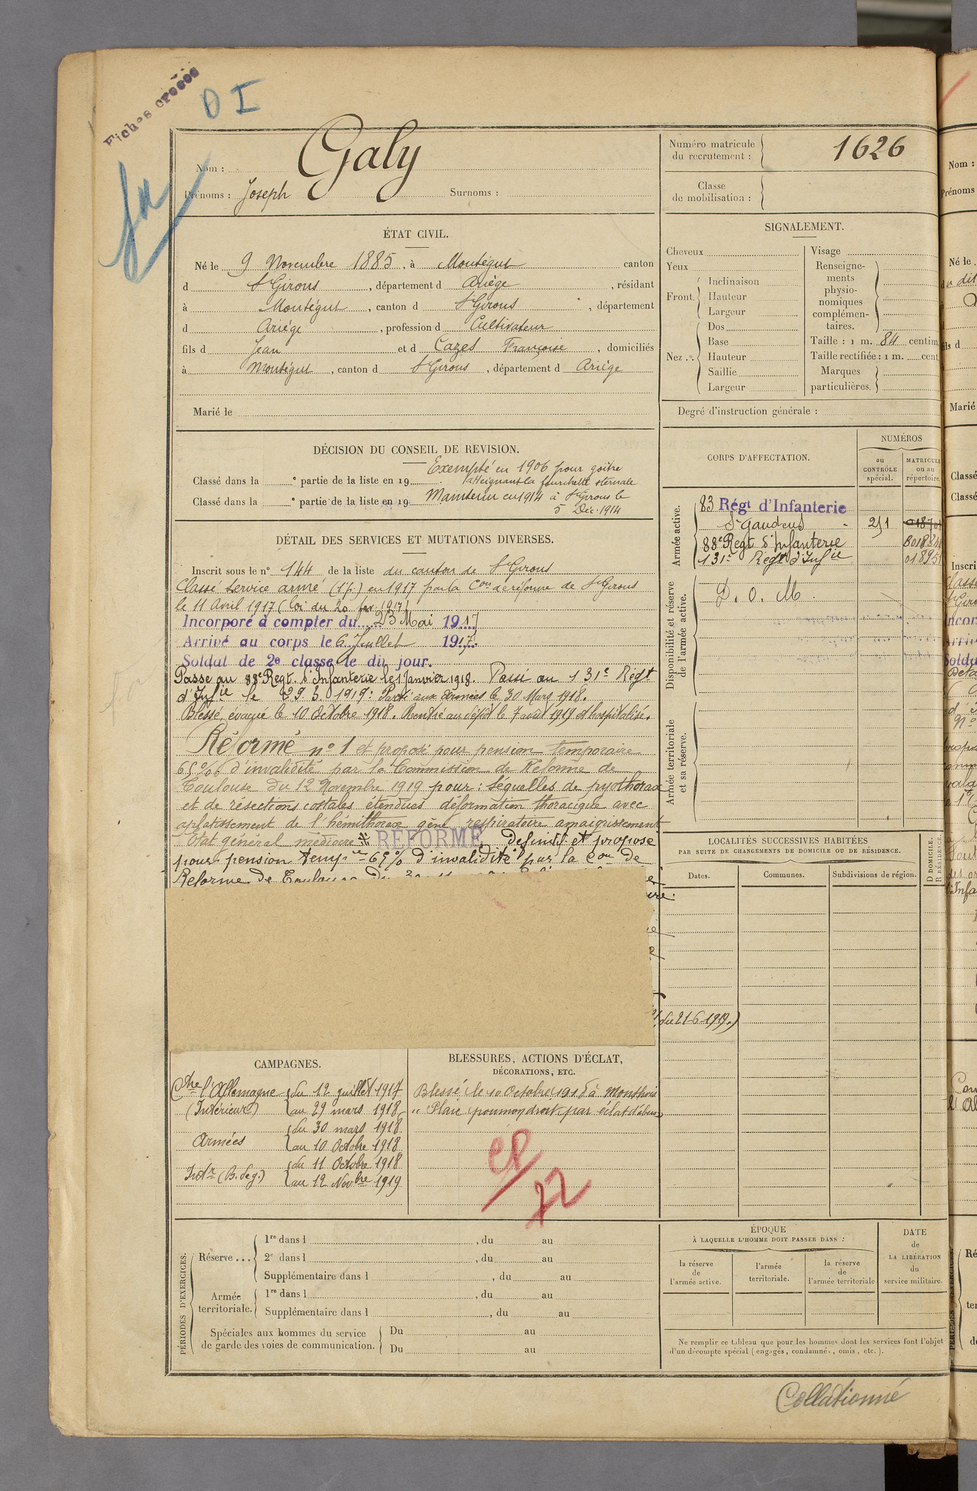 Fiches créées
D I
Nom : Galy
Prénoms : Joseph Surnoms :
Numéro matricule du recrutement : 1626
Classe de mobilisation :
ÉTAT CIVIL.
Né le 9 Novembre 1885, à Montégut canton
d St Girons, département d Ariège, résidant
à Montégut, canton d St Girons, département
d Ariège, profession d Cultivateur
fils d Jean et d Cazes Françoise, domiciliés
à Montégut, canton d St Girons, département d Ariège
Marié le
SIGNALEMENT.
Cheveux
Yeux
Front Inclinaison
Hauteur
Largeur
Nez Dos
Base
Hauteur
Saillie
Largeur
Visage
Renseignements physionomiques complémentaires.
Taille : 1 m. 84 centim
Taille rectifiée : 1 m. cent
Marques particulières.
Degré d'instruction générale :
DÉCISION DU CONSEIL DE REVISION.
Exempté en 1906 pour goitre
atteignant la fourchette sternale
Classé dans la e partie de la liste en 19 .
Classé dans la e partie de la liste en 19
Maintenu en 1914 à St Girons le
5 Déc. 1914
CORPS D'AFFECTATION.
NUMÉROS
au CONTRÔLE spécial.
MATRICULE ou au répertoire.
Armée active.
83 Régt d'Infanterie
St Gaudens 251
88e Regt d'Infanterie
131e Régt d'Infie
Disponibilité et réserve de l'armée active.
D. O. M.
Armée territoriale et sa réserve.
DÉTAIL DES SERVICES ET MUTATIONS DIVERSES.
Inscrit sous le n° 144 de la liste du canton de St Girons
Classé service armé (1 p.) en 1917 par la Con de réforme de St Girons
le 11 Avril 1917 (Loi du 20 fev. 1917)
Incorporé à compter du 23 Mai 1917
Arrivé au corps le 6 Juillet 1917.
Soldat de 2e classe le dit jour.
Passé au 88e Regt d'Infanterie le 1 Janvier 1918. Passé au 131e Régt
d'Infie le 29.3.1919 : Parti aux Armées le 30 Mars 1918.
Blessé, évacué le 10 Octobre 1918. Rentré au dépôt le 7 août 1919 et hospitalisé.
Réformé n° 1 et proposé pour pension temporaire
65 % d'invalidité par la Commission de Réforme de
Toulouse du 12 Novembre 1919 pour : séquelles de pyothorax
et de résections costales étendues déformation thoracique avec
aplatissement de l'hémithorax gêne respiratoire amaigrissement
Etat général médiocre REFORMÉ Definitif et proposé
pour pension Tempre 65% d'invalidité par la Con de
Reforme de Toulouse
du 21-6-1929.)
LOCALITÉS SUCCESSIVES HABITÉES
PAR SUITE DE CHANGEMENTS DE DOMICILE OU DE RÉSIDENCE.
Dates.
Communes.
Subdivisions de région.
D DOMICILE.
R RÉSIDENCE.
CAMPAGNES.
Ctre l'Allemagne du 12 juillet 1917
(Intérieur) au 29 mars 1918
Armées du 30 mars 1918
au 10 Octobre 1918
Intr (B. de g.) du 11 Octobre 1918
au 12 Novbre 1919
BLESSURES, ACTIONS D'ÉCLAT,
DÉCORATIONS, ETC.
Blessé le 10 Octobre 1918 à Monthois
"Plaie poumon droit par éclat d'obus
PÉRIODES D'EXERCICES.
Réserve ... 1re dans l , du au
2e dans l , du au
Supplémentaire dans l , du au
Armée territoriale. 1re dans l , du au
Supplémentaire dans l , du au
Spéciales aux hommes du service
de garde des voies de communication. Du au
Du au
ÉPOQUE
À LAQUELLE L'HOMME DOIT PASSER DANS :
la réserve de l'armée active.
l'armée territoriale.
la réserve de l'armée territoriale
DATE de LA LIBÉRATION du service militaire.
Ne remplir ce tableau que pour les hommes dont les services font l'objet
d'un décompte spécial (engagés, condamnés, omis, etc.).
Collationné